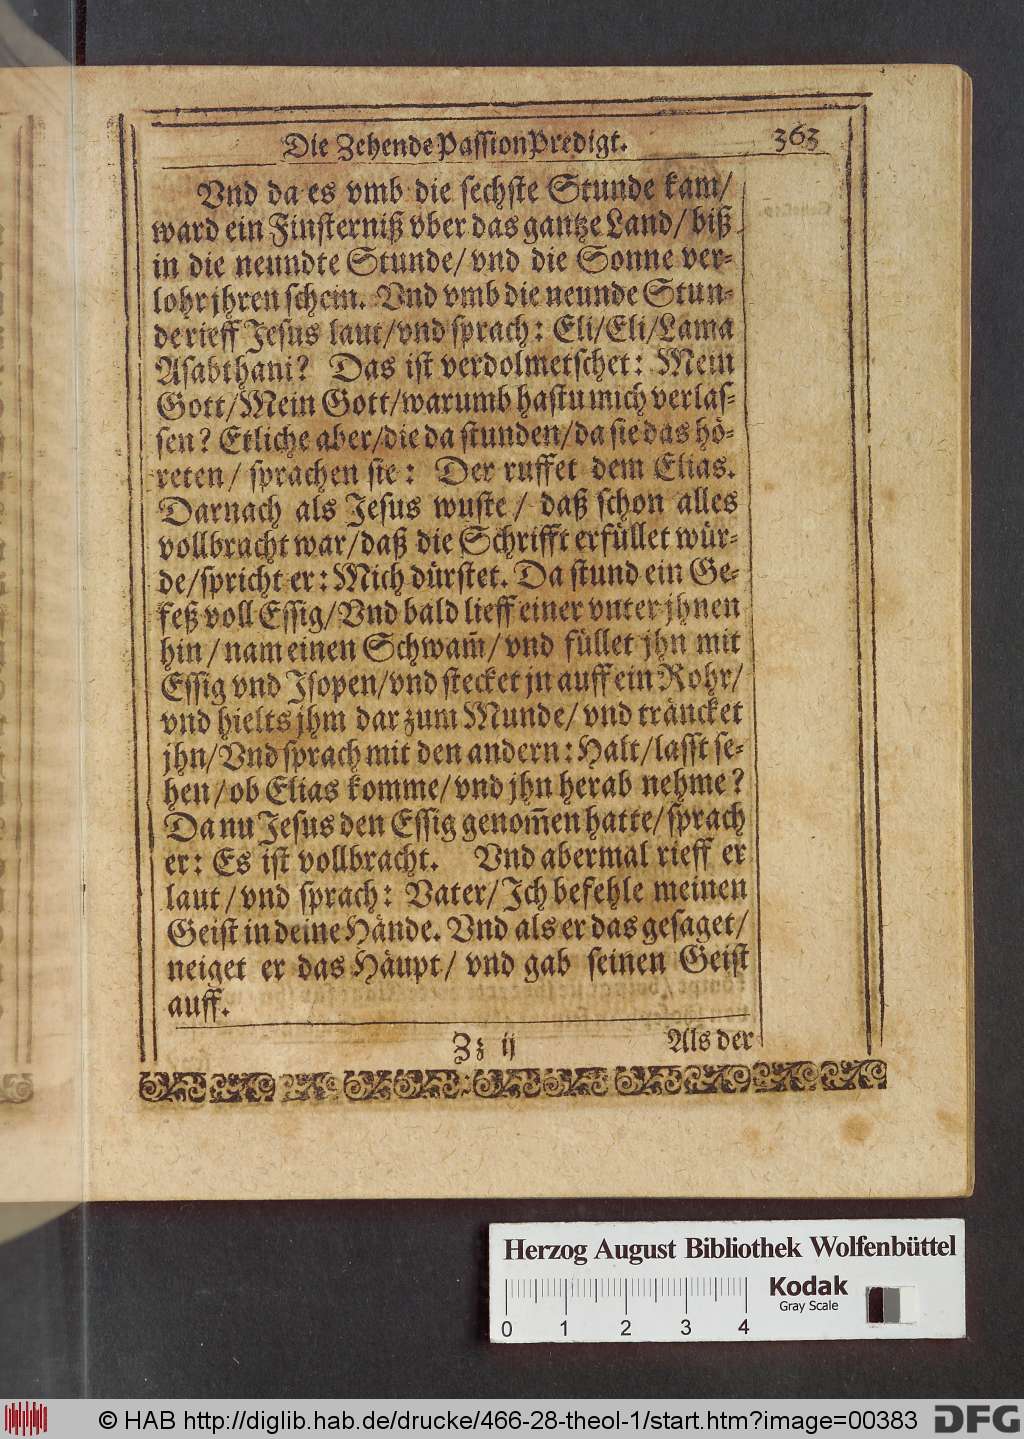 Die Zehende Passion Predigt. 363
Vnd da es vmb die sechste Stunde kam/
ward ein Finsterniß vber das gantze Land/ biß
in die neundte Stunde/ vnd die Sonne ver-
lohr jhren schein. Vnd vmb die neunde Stun-
de rieff Jesus laut/ vnd sprach: Eli/ Eli/ Lama
Asabthani? Das ist verdolmetschet: Mein
Gott/ Mein Gott/ warumb hastu mich verlas-
sen? Etliche aber/ die da stunden/ da sie das hö-
reten/ sprachen sie: Der ruffet dem Elias.
Darnach als Jesus wuste/ daß schon alles
vollbracht war/ daß die Schrifft erfüllet wür-
de/ spricht er: Mich dürstet. Da stund ein Ge-
feß voll Essig/ Vnd bald lieff einer vnter jhnen
hin/ nam einen Schwam̃/ vnd füllet jhn mit
Essig vnd Isopen/ vnd stecket jn auff ein Rohr/
vnd hielts jhm dar zum Munde/ vnd träncket
jhn/ Vnd sprach mit den andern: Halt/ lasst se-
hen/ ob Elias komme/ vnd jhn herab nehme?
Da nu Jesus den Essig genom̃en hatte/ sprach
er: Es ist vollbracht. Vnd abermal rieff er
laut/ vnd sprach: Vater/ Ich befehle meinen
Geist in deine Hände. Vnd als er das gesaget/
neiget er das Häupt/ vnd gab seinen Geist
auff.
Zz ij Als der
Herzog August Bibliothek Wolfenbüttel
0 1 2 3 4
Kodak
Gray Scale
© HAB http://diglib.hab.de/drucke/466-28-theol-1/start.htm?image=00383
DFG